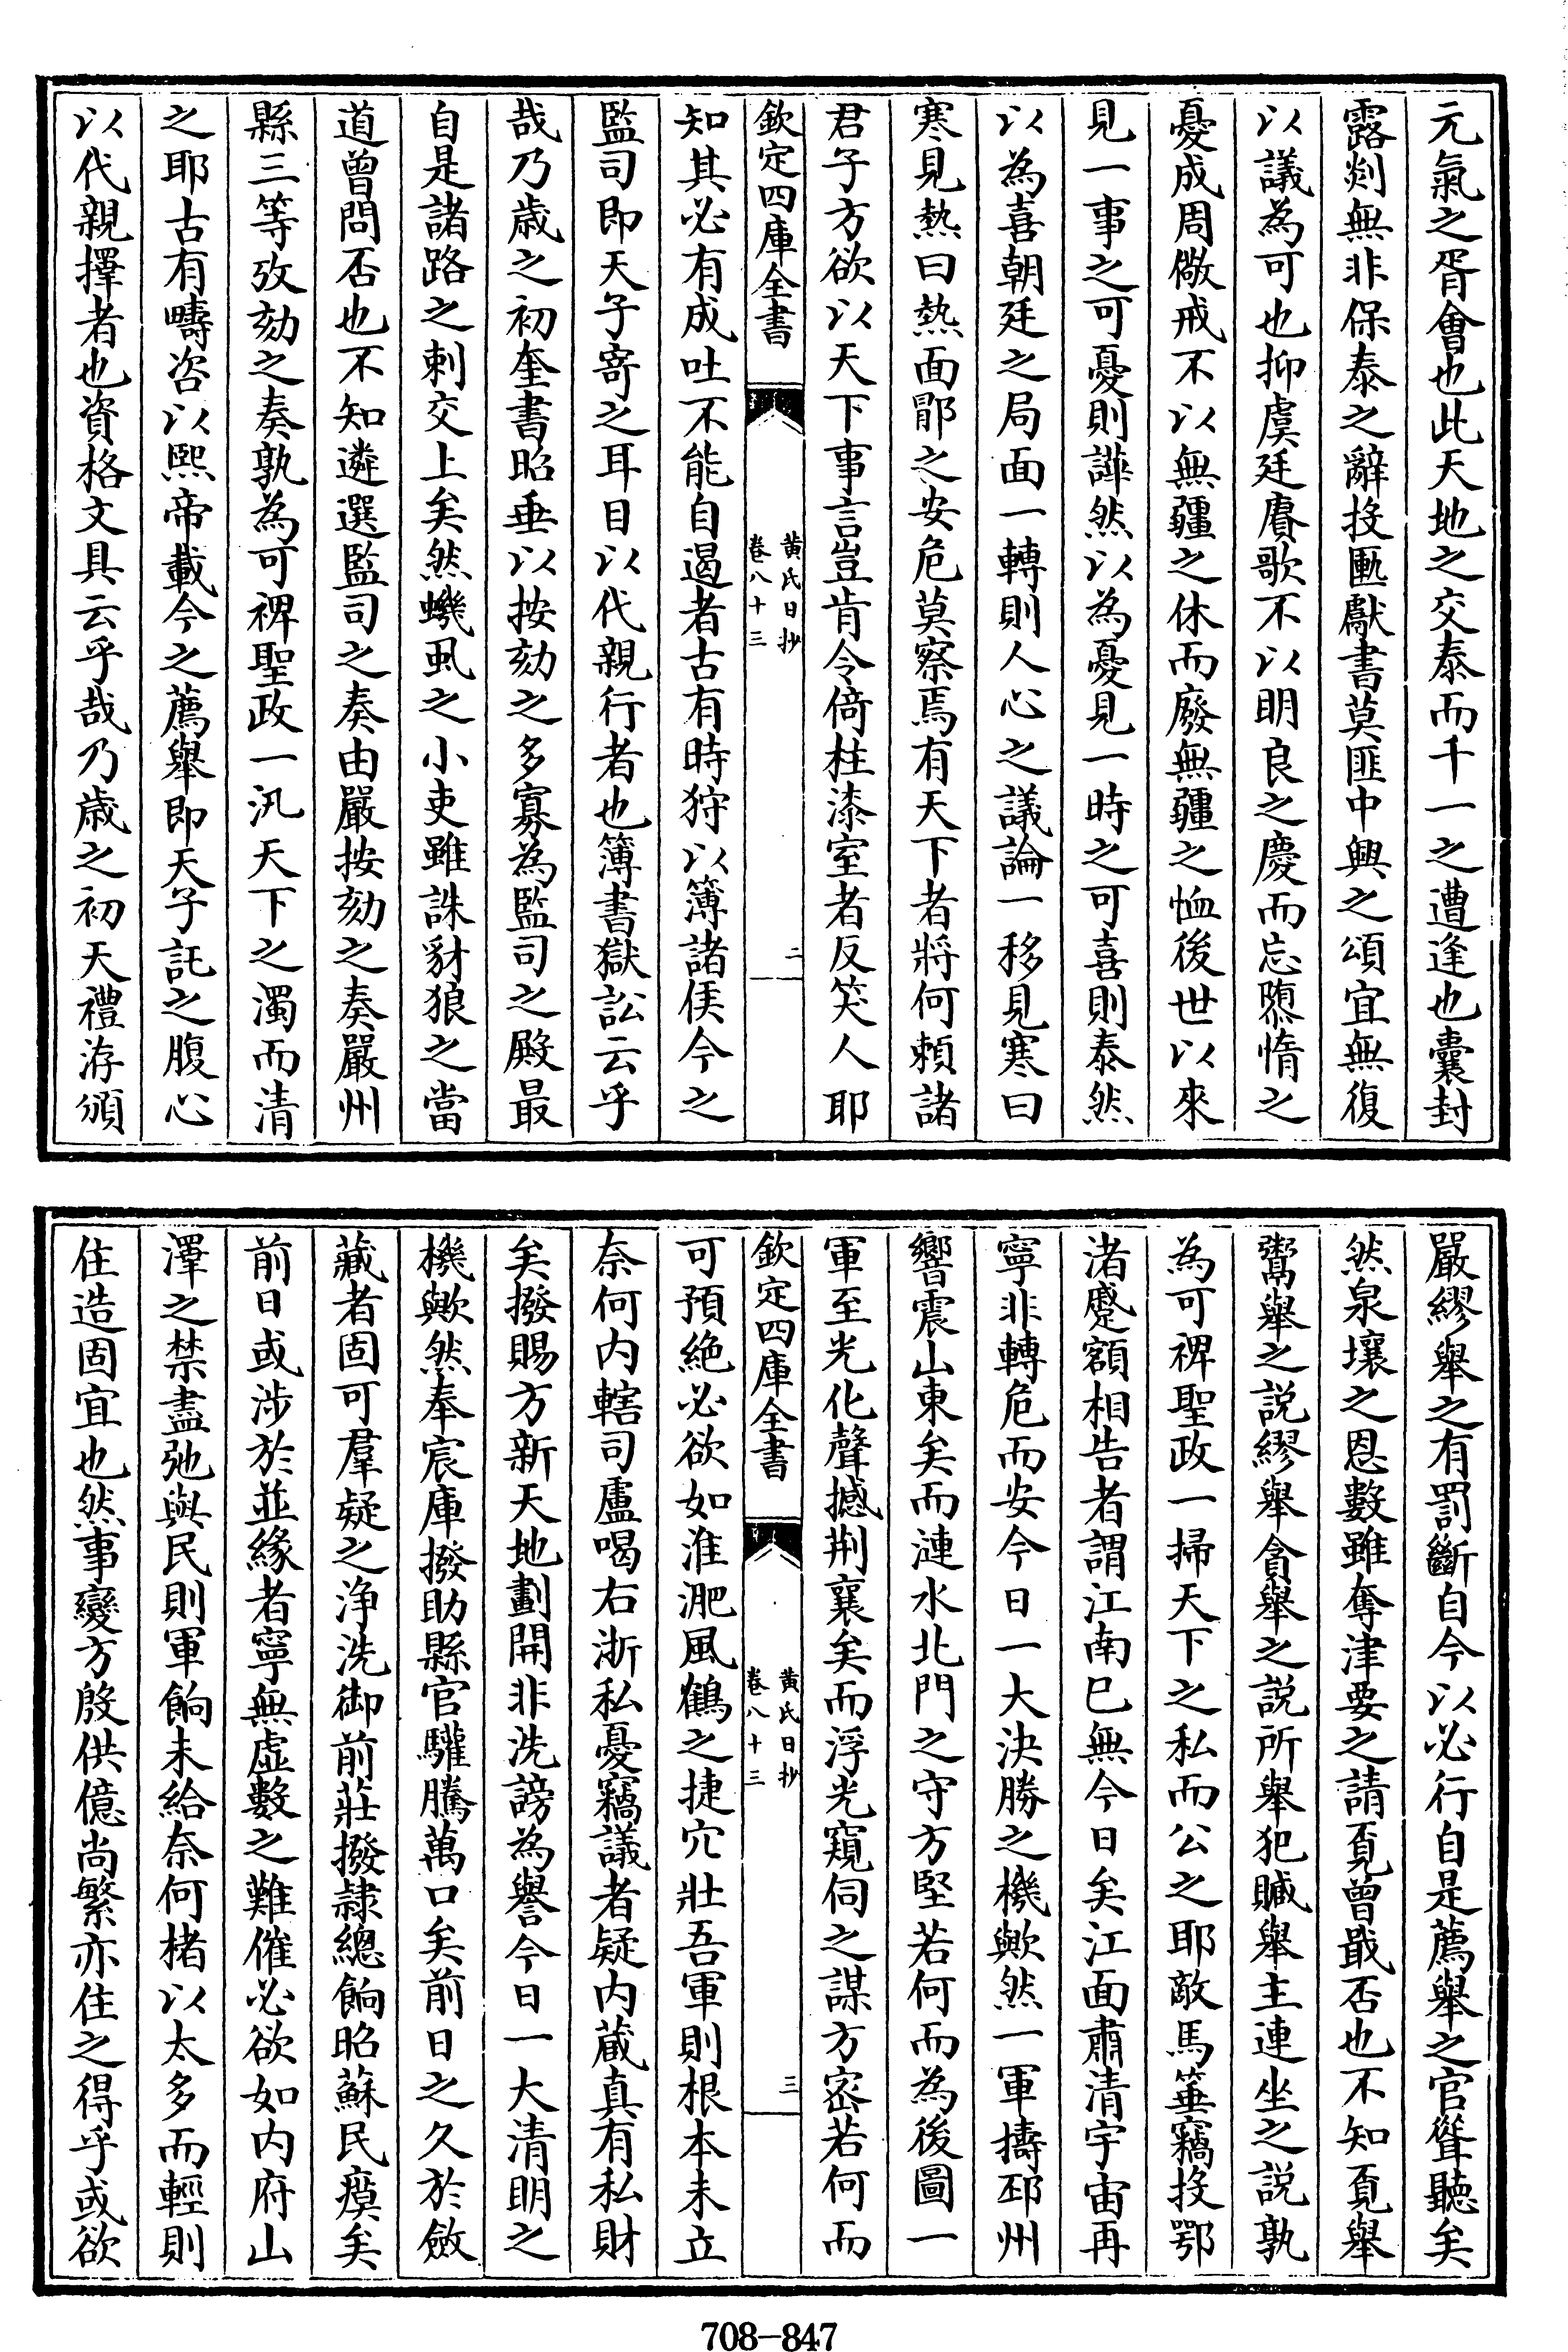 元氣之胥會也此天地之交泰而千一之遭逢也囊封
露剡無非保泰之辭投匭獻書莫匪中興之頌宜無復
以議為可也抑虞廷賡歌不以明良之慶而忘隳惰之
憂成周儆戒不以無疆之休而廢無疆之恤後世以來
見一事之可憂則譁然以為憂見一時之可喜則泰然
以為喜朝廷之局面一轉則人心之議論一移見寒曰
寒見熱曰熱面郿之安危莫察焉有天下者將何賴諸
君子方欲以天下事言豈肯令倚柱漆室者反笑人耶
欽定四庫全書
黄氏日抄
卷八十三
二
知其必有成吐不能自遏者古有時狩以簿諸侯今之
監司即天子寄之耳目以代親行者也簿書獄訟云乎
哉乃歲之初奎書昭垂以按劾之多寡為監司之殿最
自是諸路之剌交上矣然蟣虱之小吏雖誅豺狼之當
道曾問否也不知遴選監司之奏由嚴按劾之奏嚴州
縣三等攷劾之奏孰為可裨聖政一汎天下之濁而清
之耶古有疇咨以熙帝載今之薦舉即天子託之腹心
以代親擇者也資格文具云乎哉乃歲之初天禮洊頒
嚴繆舉之有罰斷自今以必行自是薦舉之官聳聽矣
然泉壤之恩數雖奪津要之請覔曾戢否也不知覔舉
鬻舉之説繆舉貪舉之説所舉犯贓舉主連坐之説孰
為可裨聖政一掃天下之私而公之耶敵馬箠竊投鄂
渚蹙額相告者謂江南已無今日矣江面肅清宇宙再
寧非轉危而安今日一大決勝之機歟然一軍擣邳州
響震山東矣而漣水北門之守方堅若何而為後圖一
軍至光化聲撼荆襄矣而浮光窺伺之謀方宻若何而
欽定四庫全書
黄氏日抄
卷八十三
三
可預絶必欲如淮淝風鶴之捷穴壯吾軍則根本未立
奈何内轄司盧喝右浙私憂竊議者疑内蔵真有私財
矣撥賜方新天地劃開非洗謗為譽今日一大清明之
機歟然奉宸庫撥助縣官驩騰萬口矣前日之久於斂
藏者固可羣疑之浄洗御前莊撥隷總餉昭蘇民瘼矣
前日或涉於並緣者寧無虚數之難催必欲如内府山
澤之禁盡弛與民則軍餉未給奈何楮以太多而輕則
住造固宜也然事變方殷供億尚繁亦住之得乎或欲
708-847